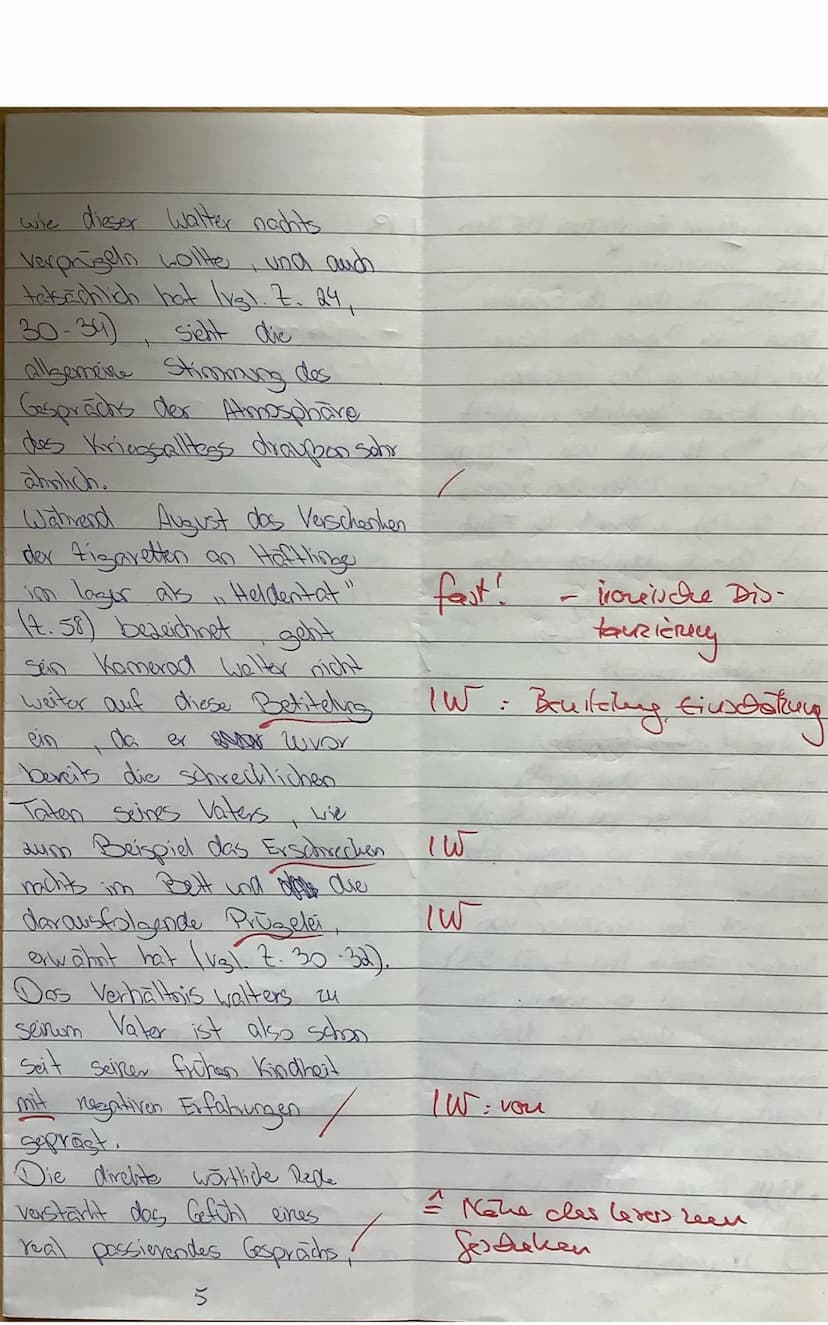 wie dieser Walter nachts
verprügeln wollte, und auch
tatsächlich hat (vgl. Z. 24,
30-34), sieht die
allgemeine Stimmung des
Gesprächs der Atmosphäre
des Kriegsalltags draußen sehr
ähnlich.
Während August das Verschenken
der Zigaretten an Häftlinge
im Lager als „Heldentat" fast! - ironische Dis-
(Z. 58) bezeichnet, geht tanzierung
sein Kamerad Walter nicht
weiter auf diese Betitelung IW : Beurteilung, Einschätzung
ein, da er zuvor
bereits die schrecklichen
Taten seines Vaters, wie
zum Beispiel das Erschrecken IW
nachts im Bett und die
darausfolgende Prügelei, IW
erwähnt hat (vgl. Z. 30-32).
Das Verhältnis Walters zu
seinem Vater ist also schon
seit seiner frühen Kindheit
mit negativen Erfahrungen / IW : von
geprägt.
Die direkte wörtliche Rede
verstärkt das Gefühl eines ≙ Nähe des Lesers zum
real passierendes Gesprächs, / Geschehen
5